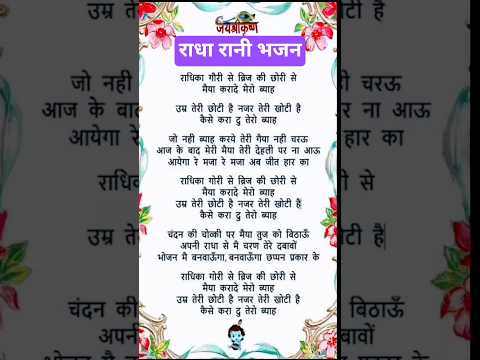 जयश्रीकृष्ण
राधा रानी भजन
राधिका गौरी से ब्रिज की छोरी से
मैया करादे मेरो ब्याह
उम्र तेरी छोटी है नजर तेरी खोटी है
कैसे करा दु तेरो ब्याह
जो नही ब्याह करये तेरी गैया नही चरऊ
आज के बाद मेरी मैया तेरी देहली पर ना आऊ
आयेगा रे मजा रे मजा अब जीत हार का
राधिका गोरी से ब्रिज की छोरी से
मैया करादे मेरो ब्याह
उम्र तेरी छोटी है नजर तेरी खोटी हैं
कैसे करा दु तेरो ब्याह
चंदन की चोव्की पर मैया तुज को बिठाऊँ
अपनी राधा से मै चरण तेरे दबावों
भोजन मै बनवाऊँगा, बनवाऊँगा छप्पन प्रकार के
राधिका गोरी से ब्रिज की छोरी से
मैया करादे मेरो ब्याह
उम्र तेरी छोटी है नजर तेरी खोटी है
कैसे करा दु तेरो ब्याह